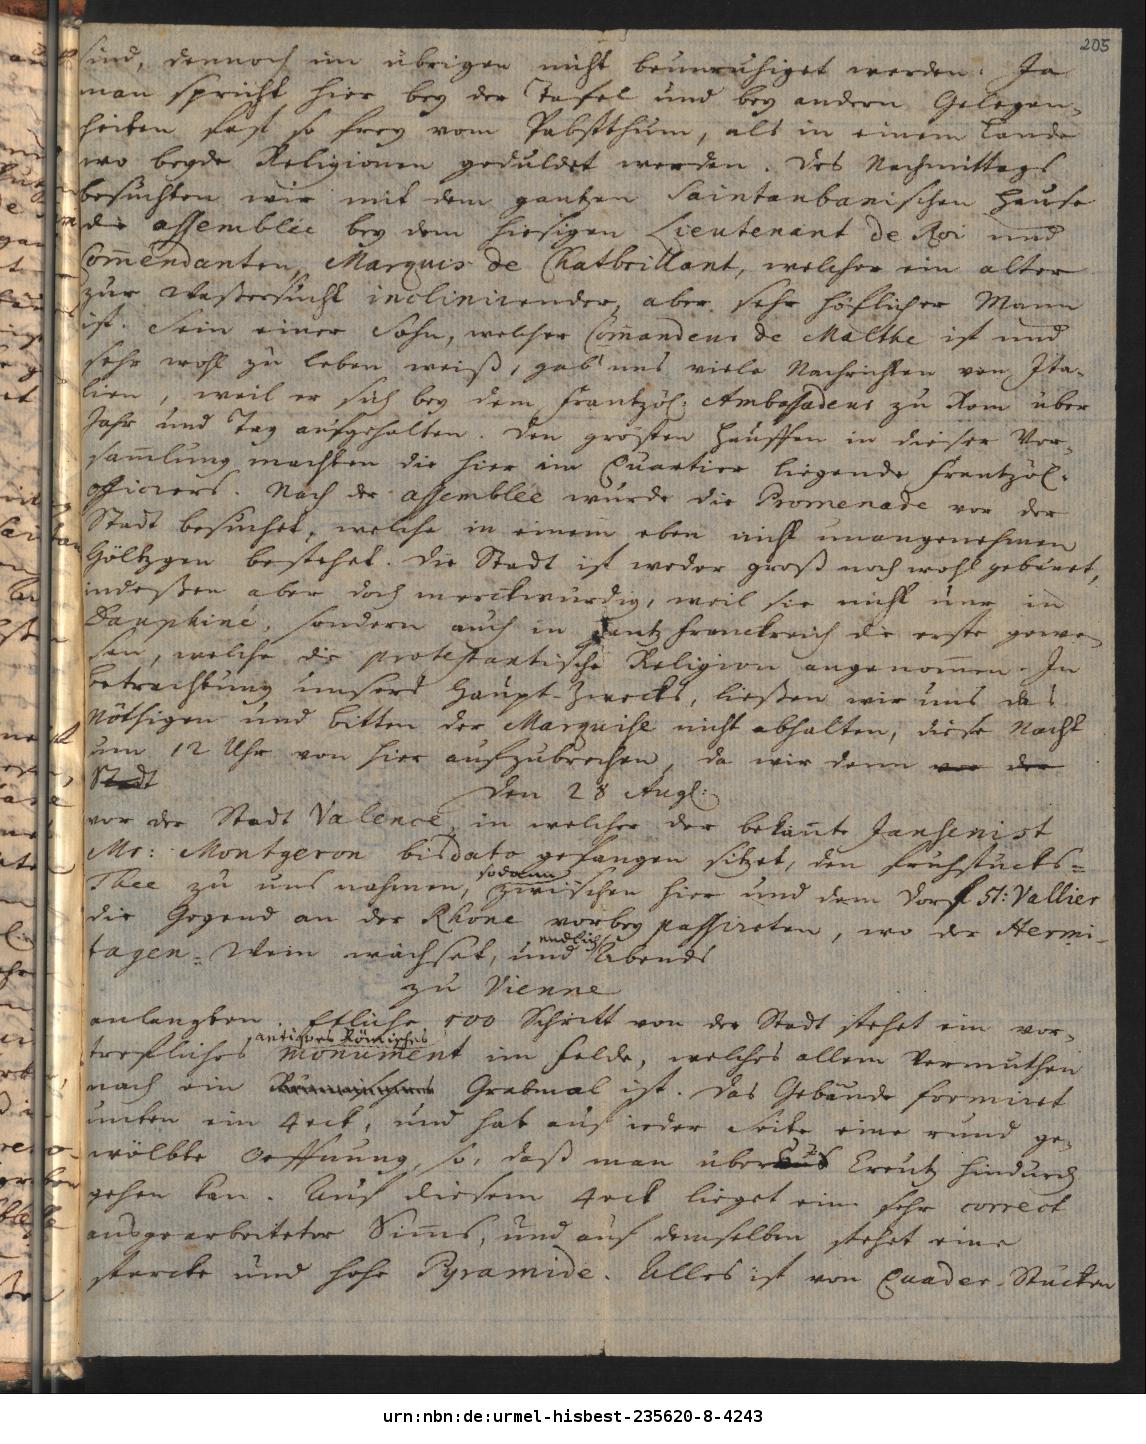 205
sind, dennoch im übrigen nicht beunruhiget werden. Ja
man spricht hier bey der Tafel und bey andern Gelegen-
heiten fast so frey vom Pabstthum, als in einem Lande
wo beyde Religionen geduldet werden. Des Nachmittags
besuchten wir mit dem gantzen Saintaubanischen Hause
die assemblée bey dem hiesigen Lieutenant de Roi und
Com̄endanten, Marquis de Chatbrillant, welcher ein alter
zur Waßersucht inclinirender, aber sehr höflicher Mann
ist. Sein einer Sohn, welcher Com̄andeur de Malthe ist und
sehr wohl zu leben weiß, gab uns viele Nachrichten von Ita-
lien, weil er sich bey dem Frantzös: Ambassadeur zu Rom über
Jahr und Tag aufgehalten. Den grösten Hauffen in dieser Ver-
sam̄lung machten die hier im Quartier liegende Frantzös:
officiers. Nach der assemblée wurde die Promenade vor der
Stadt besuchet, welche in einem eben nicht unangenehmen
Höltzgen bestehet. Die Stadt ist weder groß noch wohl gebauet,
indeßen aber doch merckwürdig, weil sie nicht nur in
Dauphiné, sondern auch in gantz Franckreich die erste gewe-
sen, welche die protestantische Religion angenom̄en. In
Betrachtung unsers Haupt-Zwecks, ließen wir uns das
Nöthigen und Bitten der Marquise nicht abhalten, diese Nacht
um 12 Uhr von hier aufzubrechen, da wir denn vor der
Stadt
Den 28 Aug:
vor der Stadt Valence, in welcher der bekan̄te Jansenist
Mr: Montgeron bis dato gefangen sitzet, den Fruhstucks-
Thee zu uns nahmen, sodann zwischen hier und dem Dorf St: Vallier
die Gegend an der Rhône vorbey passireten, wo der Hermi-
tagen-Wein wächset, und endlich Abends
zu Vienne
anlangten. Etliche 500 Schritt von der Stadt stehet ein vor-
trefliches antiques Römisches monument im Felde, welches allem Vermuthen
nach ein Grabmal ist. Das Gebäude formiret
unten ein 4eck, und hat auf ieder Seite eine rund ge-
wölbte Oeffnung, so, daß man übers Creutz hindurch
gehen kan. Auf diesem 4eck lieget ein sehr correct
ausgearbeiteter Sim̄s, und auf demselben stehet eine
starcke und hohe Pyramide. Alles ist von Quader-Stücken
urn:nbn:de:urmel-hisbest-235620-8-4243